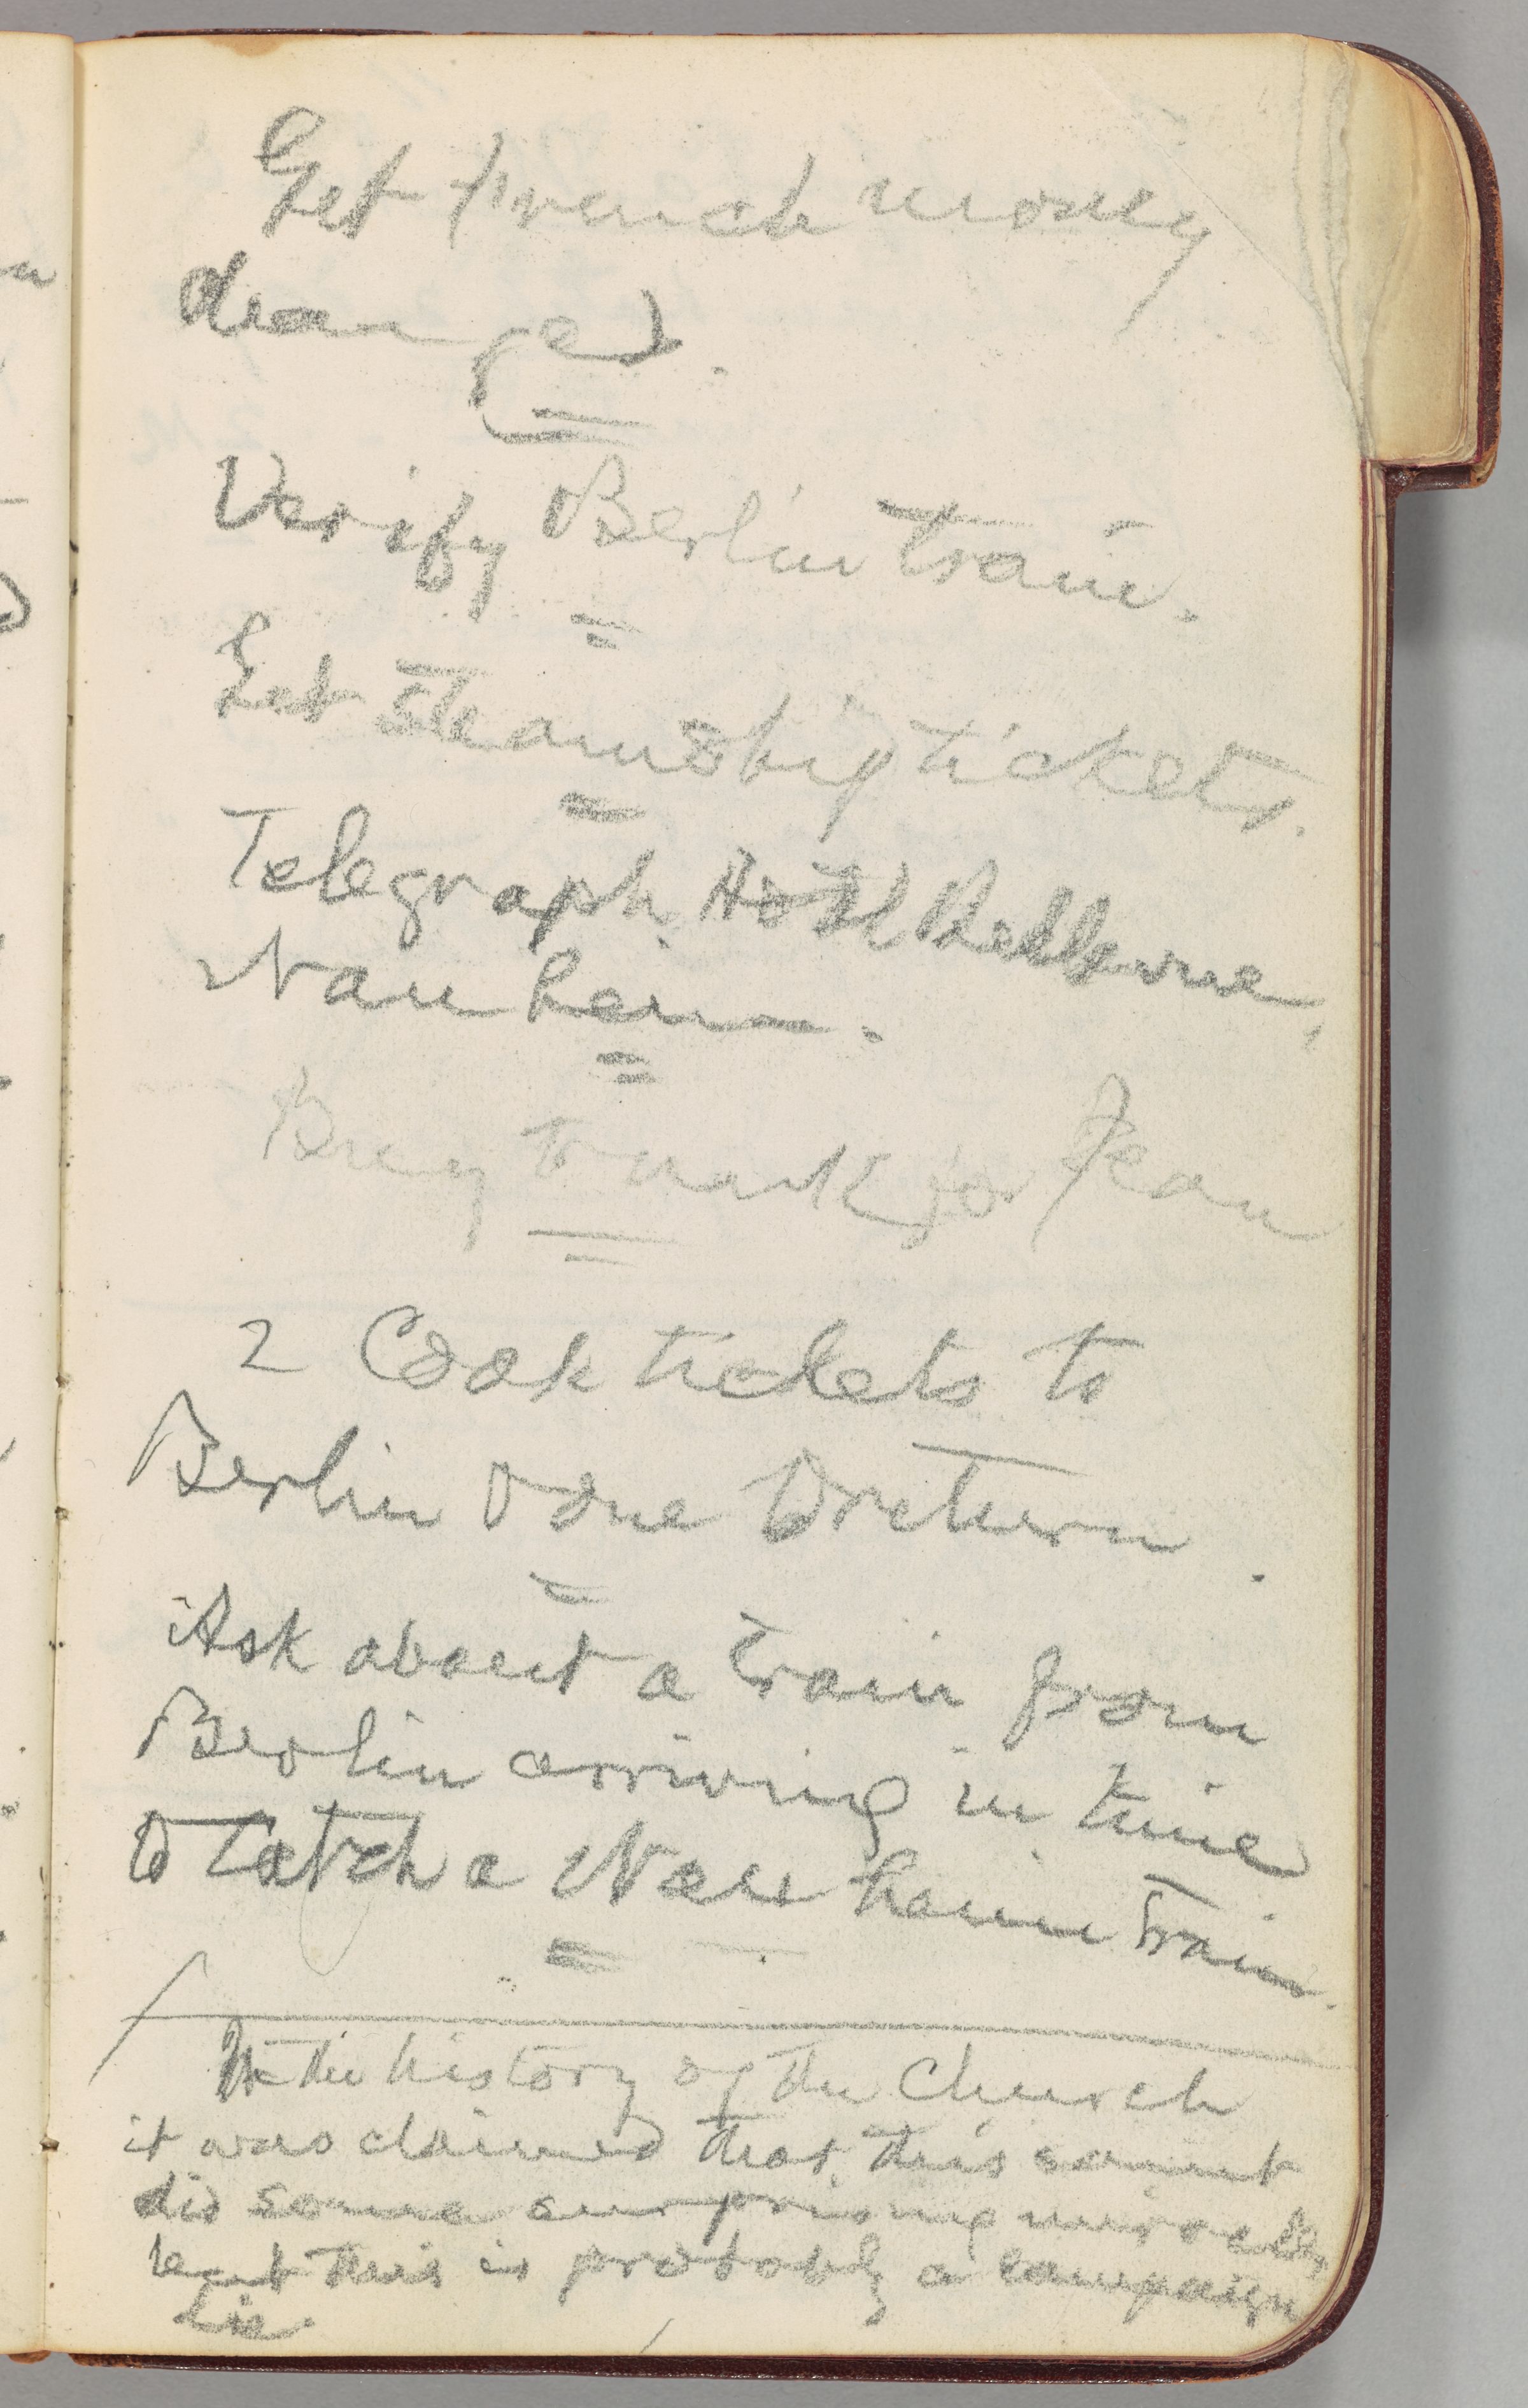 Get French money
changed.
Verify Berlin train.
Get steamship tickets.
Telegraph Hotel
Nauheim.
Buy trunk for Jean
2 Cook tickets to
Berlin & one to return.
Ask about a train from
Berlin arriving in time
to catch a Nauheim train.
In the history of the Church
it was claimed that this saint
did some surprising miracles
but this is probably a campaign
lie.